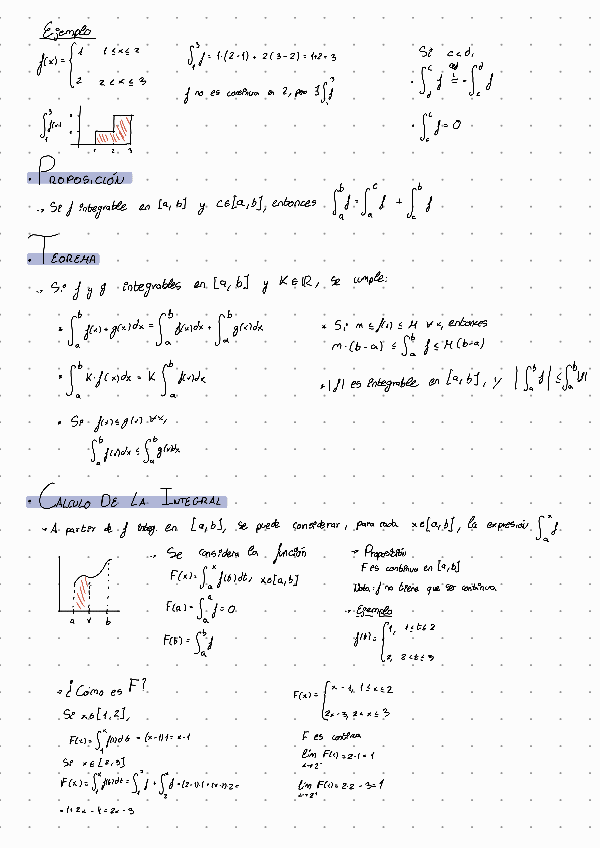 Ejemplo
f(x) = { 1   1 ≤ x ≤ 2
2   2 < x ≤ 3
∫₁³ f = 1·(2-1) + 2(3-2) = 1+2 = 3
f no es continua en 2, pero ∃ ∫₁³ f
Si c<d,
· ∫_d^c f = - ∫_c^d f
· ∫_c^c f = 0
∫₁³ f(x)
1 2 3
· PROPOSICIÓN
→ Si f integrable en [a,b] y c∈[a,b], entonces ∫_a^b f = ∫_a^c f + ∫_c^b f
· TEOREMA
→ Si f y g integrables en [a,b] y K∈ℝ, se cumple:
* ∫_a^b f(x)+g(x)dx = ∫_a^b f(x)dx + ∫_a^b g(x)dx
* Si m ≤ f(x) ≤ M ∀x, entonces
m·(b-a) ≤ ∫_a^b f ≤ M(b-a)
* ∫_a^b K·f(x)dx = K ∫_a^b f(x)dx
* |f| es integrable en [a,b], y |∫_a^b f| ≤ ∫_a^b |f|
* Si f(x) ≤ g(x) ∀x,
∫_a^b f(x)dx ≤ ∫_a^b g(x)dx
· CALCULO DE LA INTEGRAL
→ A partir de f integ. en [a,b], se puede considerar, para cada x∈[a,b], la expresión ∫_a^x f
a x b
→ Se considera la función
F(x) = ∫_a^x f(t)dt, x∈[a,b]
F(a) = ∫_a^a f = 0
F(b) = ∫_a^b f
→ Proposición
F es continua en [a,b]
Nota: f no tiene que ser continua.
→ Ejemplo
f(t) = { 1, 1≤t≤2
2, 2<t≤3
→ ¿Cómo es F?
Si x∈[1,2],
F(x) = ∫₁^x f(t)dt = (x-1)·1 = x-1
Si x∈[2,3]
F(x) = ∫₁^x f(t)dt = ∫₁² f + ∫₂^x f = (2-1)·1 + (x-2)·2 =
= 1+2x-4 = 2x-3
F(x) = { x-1, 1≤x≤2
2x-3, 2<x≤3
F es continua
lim F(x) = 2-1 = 1
x→2⁻
lim F(x) = 2·2-3 = 1
x→2⁺